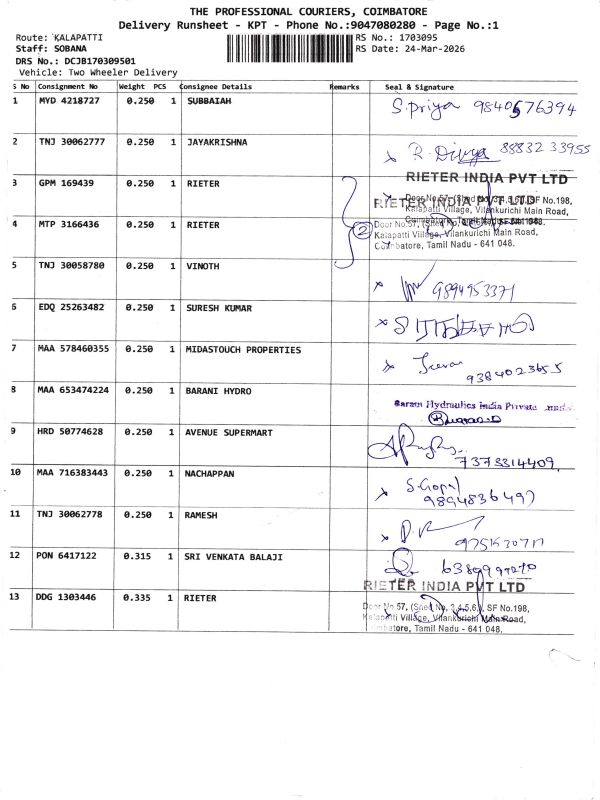 THE PROFESSIONAL COURIERS, COIMBATORE
Delivery Runsheet - KPT - Phone No.:9047080280 - Page No.:1
Route: KALAPATTI
RS No.: 1703095
Staff: SOBANA
RS Date: 24-Mar-2026
DRS No.: DCJB170309501
Vehicle: Two Wheeler Delivery
S No Consignment No Weight PCS Consignee Details Remarks Seal & Signature
1 MYD 4218727 0.250 1 SUBBAIAH S.Priya 9840576394
2 TNJ 30062777 0.250 1 JAYAKRISHNA R. Divya 88832 33955
3 GPM 169439 0.250 1 RIETER
RIETER INDIA PVT LTD
Door No.57, (Shed No. 3,4,5,6,), SF No.198,
Kalapatti Village, Vilankurichi Main Road,
4 MTP 3166436 0.250 1 RIETER
2
RIETER INDIA PVT LTD
Kalapatti Village, Vilankurichi Main Road,
Coimbatore, Tamil Nadu - 641 048.
5 TNJ 30058780 0.250 1 VINOTH 9894953371
6 EDQ 25263482 0.250 1 SURESH KUMAR
7 MAA 578460355 0.250 1 MIDASTOUCH PROPERTIES
8 MAA 653474224 0.250 1 BARANI HYDRO
Barani Hydraulics India Private
9 HRD 50774628 0.250 1 AVENUE SUPERMART 7373314409
10 MAA 716383443 0.250 1 NACHAPPAN S.Gopal
11 TNJ 30062778 0.250 1 RAMESH
12 PON 6417122 0.315 1 SRI VENKATA BALAJI
13 DDG 1303446 0.335 1 RIETER
RIETER INDIA PVT LTD
Door No 57, (Shed No, 3,4,5,6,), SF No.198,
Kalapatti Village, Vilankurichi Main Road,
Coimbatore, Tamil Nadu - 641 048.